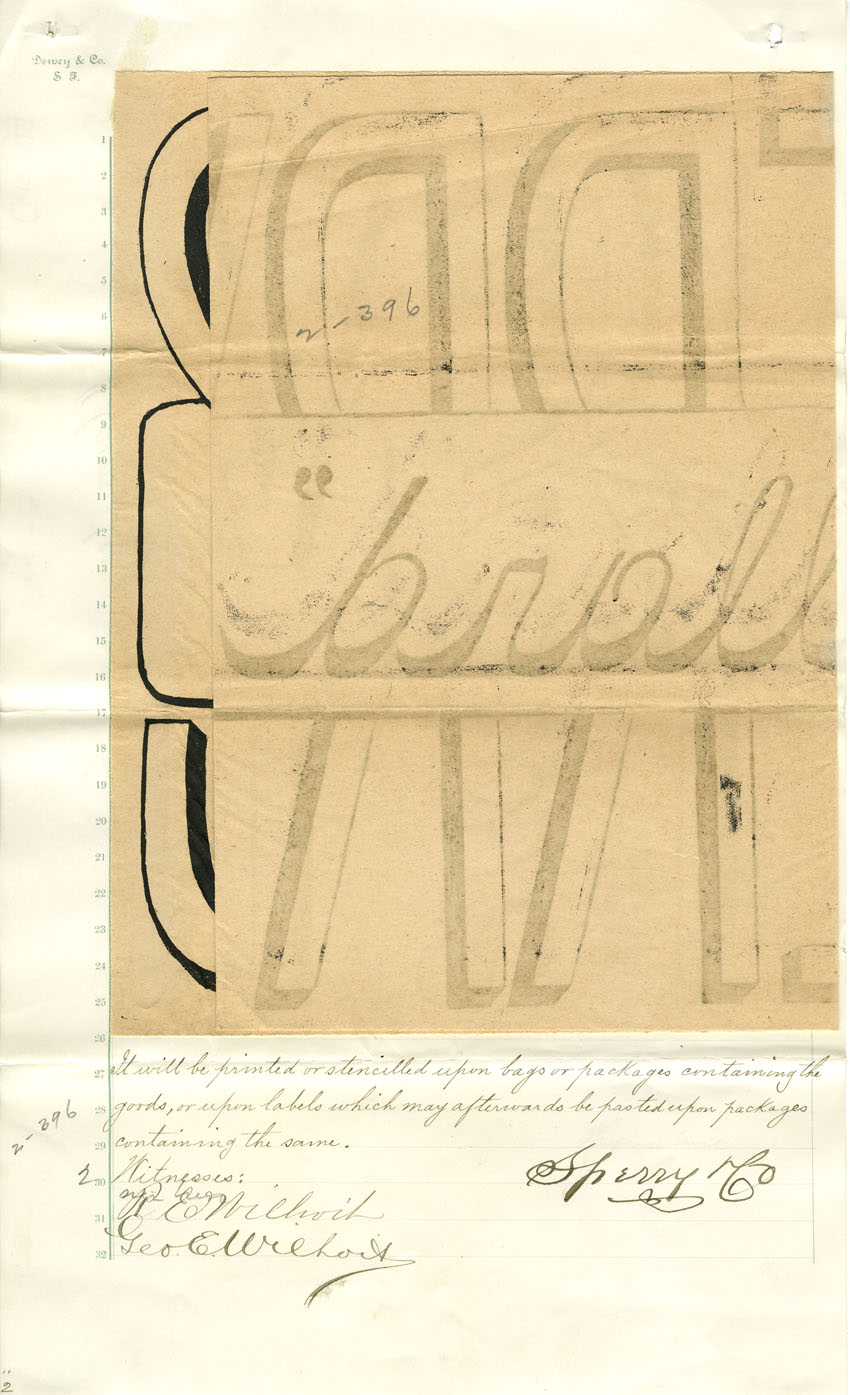 Dewey & Co.
S F.
1
2
3
4
5
6
7
8
9
10
11
12
13
14
15
16
17
18
19
20
21
22
23
24
25
26
27
28
29
30
31
32
2-396
It will be printed or stencilled upon bags or packages containing the
goods, or upon labels which may afterwards be pasted upon packages
containing the same.
2-396
2
Witnesses:
Sperry & Co
R E Wilhoit
Geo. E. Wilhoit
"
2